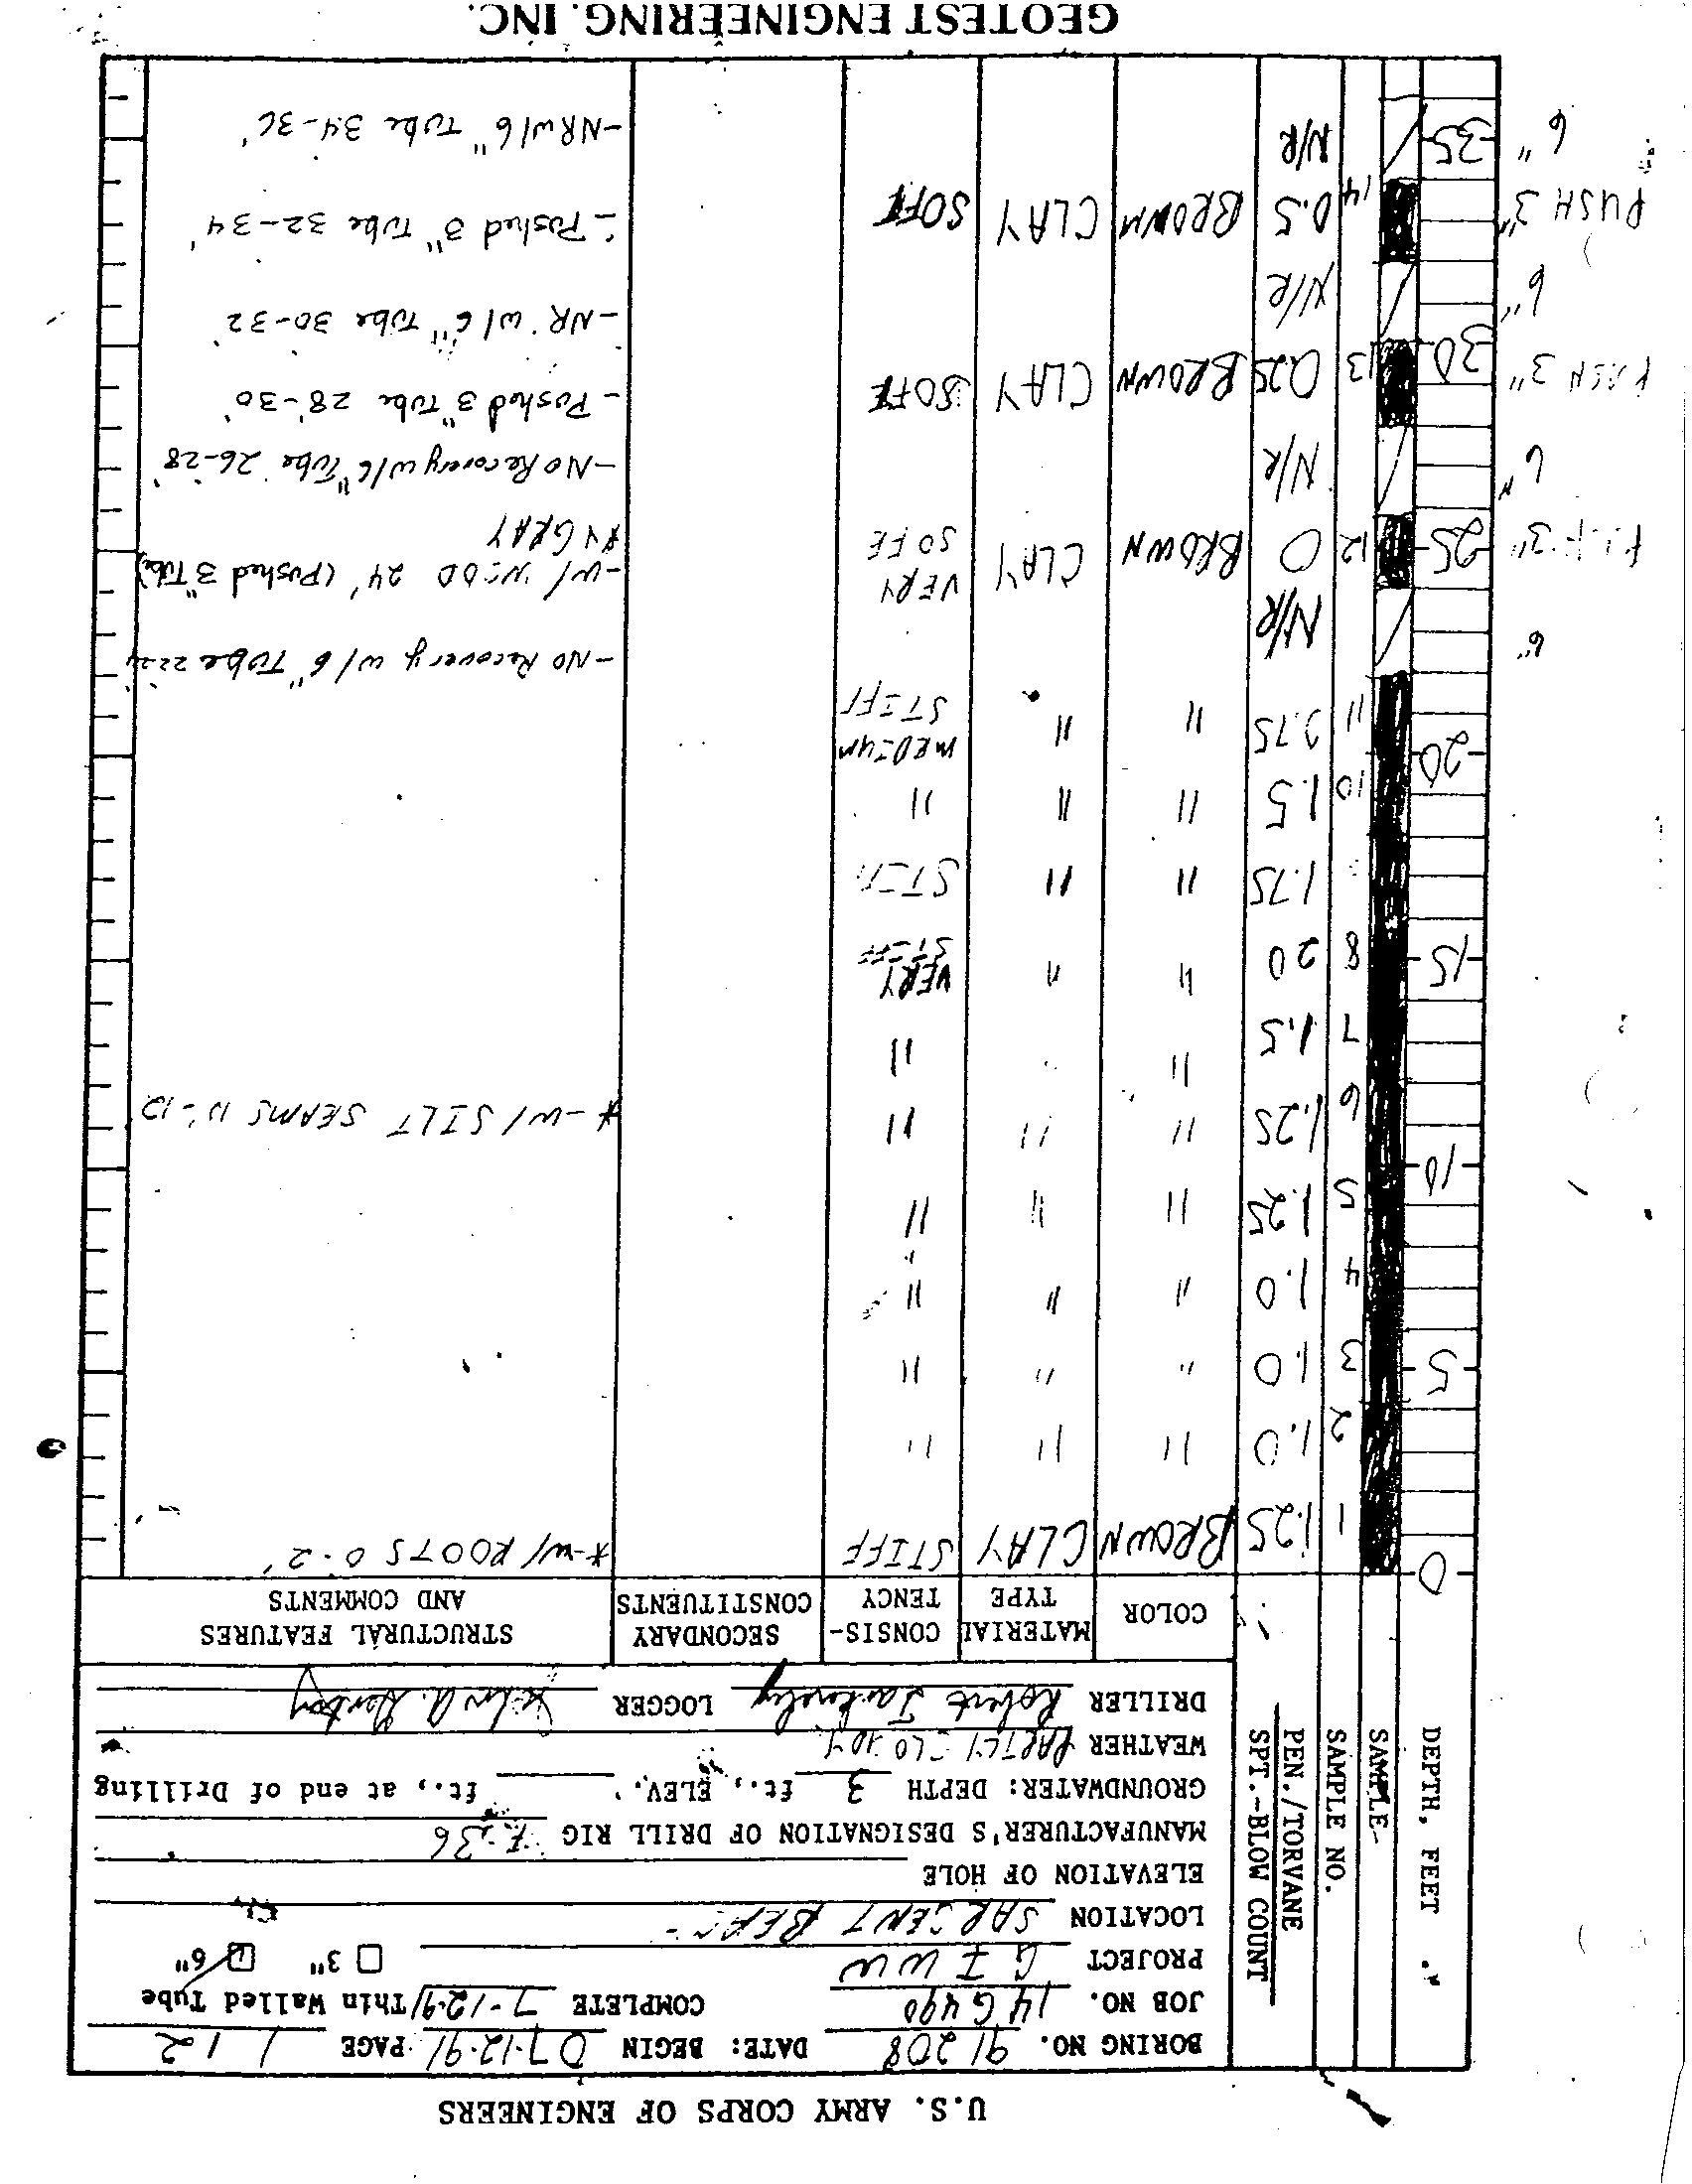 U.S. ARMY CORPS OF ENGINEERS
BORING NO. 91 208 DATE: BEGIN 07-12-91 PAGE 1 1-2
JOB NO. 14G490 COMPLETE 7-12-91 Thin Walled Tube
PROJECT GIWW 3" 6"
LOCATION SARGENT
ELEVATION OF HOLE
MANUFACTURER'S DESIGNATION OF DRILL RIG F-36
GROUNDWATER: DEPTH 3 ft., ELEV. ft., at end of Drilling
WEATHER PARTLY CLOUDY
DRILLER Robert LOGGER
DEPTH, FEET
SAMPLE
SAMPLE NO.
PEN./TORVANE
SPT.-BLOW COUNT
COLOR MATERIAL TYPE CONSISTENCY SECONDARY CONSTITUENTS STRUCTURAL FEATURES AND COMMENTS
0 1 1.25 BROWN CLAY STIFF *-W/ ROOTS 0-2'
2 1.0 " " "
5 3 1.0 " " "
4 1.0 " " "
5 1.25 " " "
10 6 1.25 " " " *-W/ SILT SEAMS 11-12
7 1.5 " "
15 8 2.0 " " VERY STIFF
1.75 " " STIFF
10 1.5 " " "
20 11 " " MEDIUM STIFF
6" N/R -NO Recovery w/ 6" Tube 22-24
PUSH 3" 25 12 0 BROWN CLAY VERY SOFT -W/ WOOD 24' (Pushed 3" Tube)
GRAY
6" N/R -NO Recovery w/6" Tube 26-28'
PUSH 3" 30 13 0.25 BROWN CLAY SOFT -Pushed 3" Tube 28'-30'
6" N/R -NR w/ 6" Tube 30-32'
PUSH 3" 14 0.5 BROWN CLAY SOFT -Pushed 3" Tube 32-34'
6" 35 N/R -NR w/6" Tube 34-36'
GEOTEST ENGINEERING, INC.